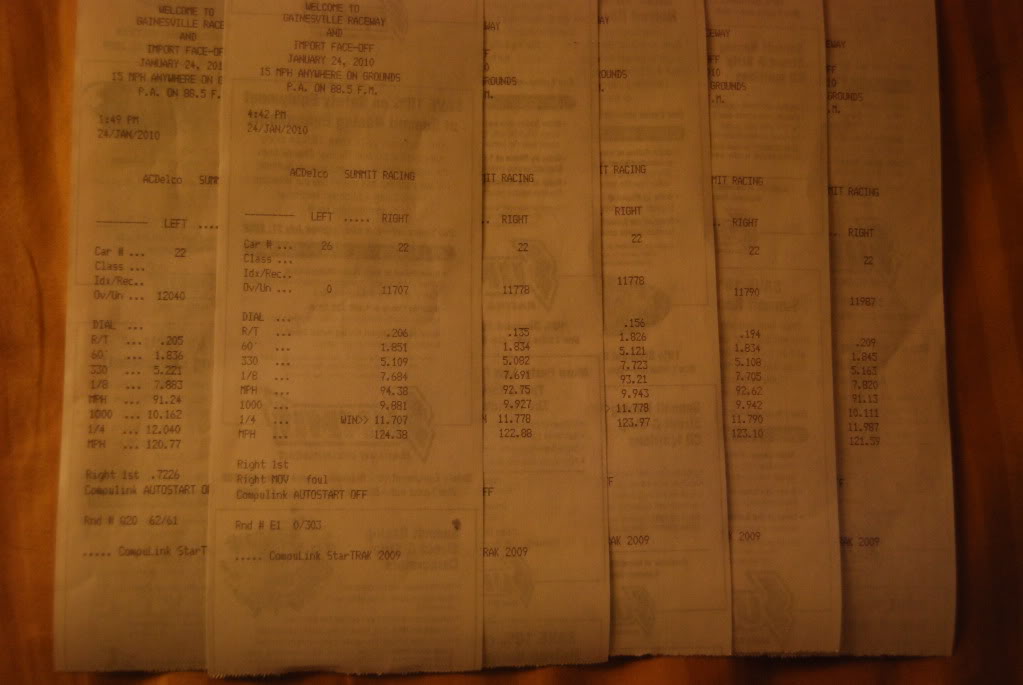 WELCOME TO
GAINESVILLE RACE
AND
IMPORT FACE-OF
JANUARY 24, 201
15 MPH ANYWHERE ON G
P.A. ON 88.5 F.
1:49 PM
24/JAN/2010
ACDelco SUM
-------- LEFT ....
Car # ... 22
Class ...
Idx/Rec..
Ov/Un ... 12040
DIAL ...
R/T ... .205
60' ... 1.836
330 ... 5.221
1/8 ... 7.883
MPH ... 91.24
1000 ... 10.162
1/4 ... 12.040
MPH ... 120.77
Right 1st .7226
Compulink AUTOSTART OF
Rnd # Q20 62/61
..... CompuLink StarT
WELCOME TO
GAINESVILLE RACEWAY
AND
IMPORT FACE-OFF
JANUARY 24, 2010
15 MPH ANYWHERE ON GROUNDS
P.A. ON 88.5 F.M.
4:42 PM
24/JAN/2010
ACDelco SUMMIT RACING
-------- LEFT ..... RIGHT
Car # ... 26 22
Class ...
Idx/Rec..
Ov/Un ... 0 11707
DIAL ...
R/T ... .206
60' ... 1.851
330 ... 5.109
1/8 ... 7.684
MPH ... 94.38
1000 ... 9.881
1/4 ... WIN>> 11.707
MPH ... 124.38
Right 1st
Right MOV foul
Compulink AUTOSTART OFF
Rnd # E1 0/303
..... CompuLink StarTRAK 2009
WAY
FF
10
GROUNDS
M.
IT RACING
.. RIGHT
22
11778
.135
1.834
5.082
7.691
92.75
9.927
11.778
122.88
FF
RAK 2009
AY
OUNDS
IT RACING
RIGHT
22
11778
.156
1.826
5.121
7.723
93.21
9.943
11.778
123.97
F
AK 2009
EWAY
FF
10
ROUNDS
.M.
MIT RACING
. RIGHT
22
11790
.194
1.834
5.108
7.705
92.62
9.942
11.790
123.10
K 2009
EWAY
FF
10
GROUNDS
.M.
MIT RACING
.. RIGHT
22
11987
.209
1.845
5.163
7.820
91.13
10.111
11.987
121.59
FF
RAK 2009